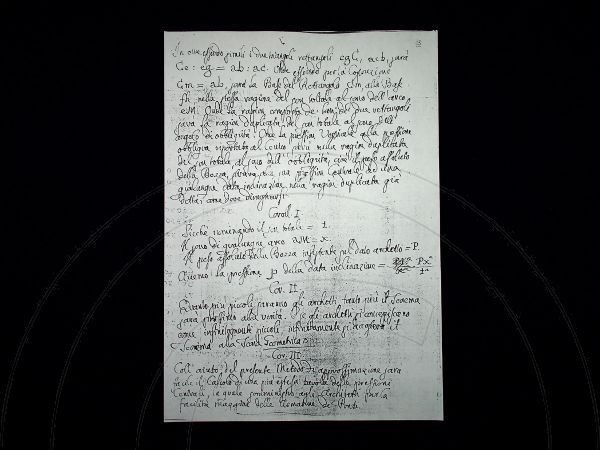 In oltre essendo simili i due triangoli rettangoli egC, acb, sarà
Ce : eg = ab : ac. Onde essendo per la Costruzione
Cm = ab, sarà la Base del Rettangolo Cm alla Base
fh nella stessa ragione del sen totale al seno dell'arco
eM. Quindi la ragion composta de' due rettangoli
sarà la ragion duplicata del sen totale al seno dell'
angolo di obbliquità. Onde la pression Verticale alla pressione
obbliqua riportata al centro sarà nella ragion duplicata
del sen totale al seno dell'obbliquità, cioè il peso assoluto
della Bozza, starà alla sua pression Centrale ad una
qualunque data inclinazione nella ragion duplicata già
detta; come dovea dimostrarsi.
Coroll. I
Sicchè nominando il sen totale = 1.
Il seno di qualunque arco aM = x.
Il peso assoluto della Bozza insistente sul dato archetto = P.
Avremo la pressione p della data inclinazione =
Cor. II
Quanto più piccoli saranno gli archetti tanto più il Teorema
sarà prossimo alla verità. Se gli archetti si concepiscano
come infinitamente piccoli infinitamente si accosterà il
Teorema alla Verità Geometrica.
Cor. III
Coll'aiuto del presente Metodo di approssimazione sarà
facile il Calcolo di una più estesa tavola delle pressioni
Centrali, la quale somministra agli Architetti una
facilità maggiore delle Centine de' Ponti.